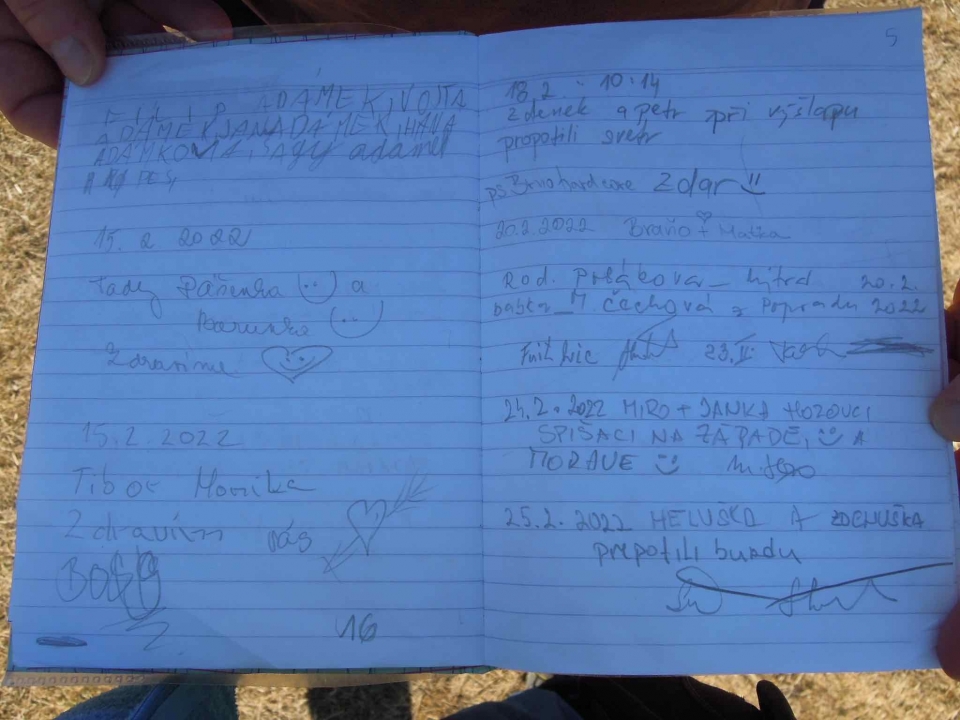 FILIP ADÁMEK, VOJTA
ADÁMEK, JANA ADÁMEK, HANA
ADÁMKOVÁ, adamek
PES,
15. 2 2022
Tady a
Zdravíme
15.2.2022
Tibor Monika
Zdravím vás
16
5
18.2 - 10:14
Zdenek a petr při výšlapu
propotili svetr
ps Brno hardcore Zdar
20.2.2022 Braňo + Maťka
Rod. Polákova_ Nitra 20.2.
babka_M. Čechová z Popradu 2022
23.II.
24.2.2022 MIRO + JANKA HOZOVCI
SPIŠACI NA ZÁPADE, A
MORAVE
25.2.2022 HELUŠKA A ZDENUŠKA
prepotili bundu